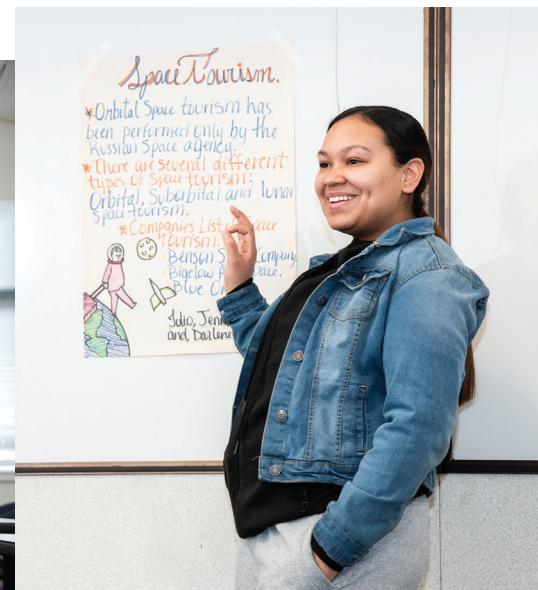 Space Tourism.
*Orbital Space tourism has
been performed only by the
Russian Space agency.
*There are several different
types of Space tourism:
Orbital, Suborbital and lunar
Space tourism.
*Companies List Space
tourism.
Benson S Company
Bigelow A pace.
Blue O
Julio, Jen
and, Darlene